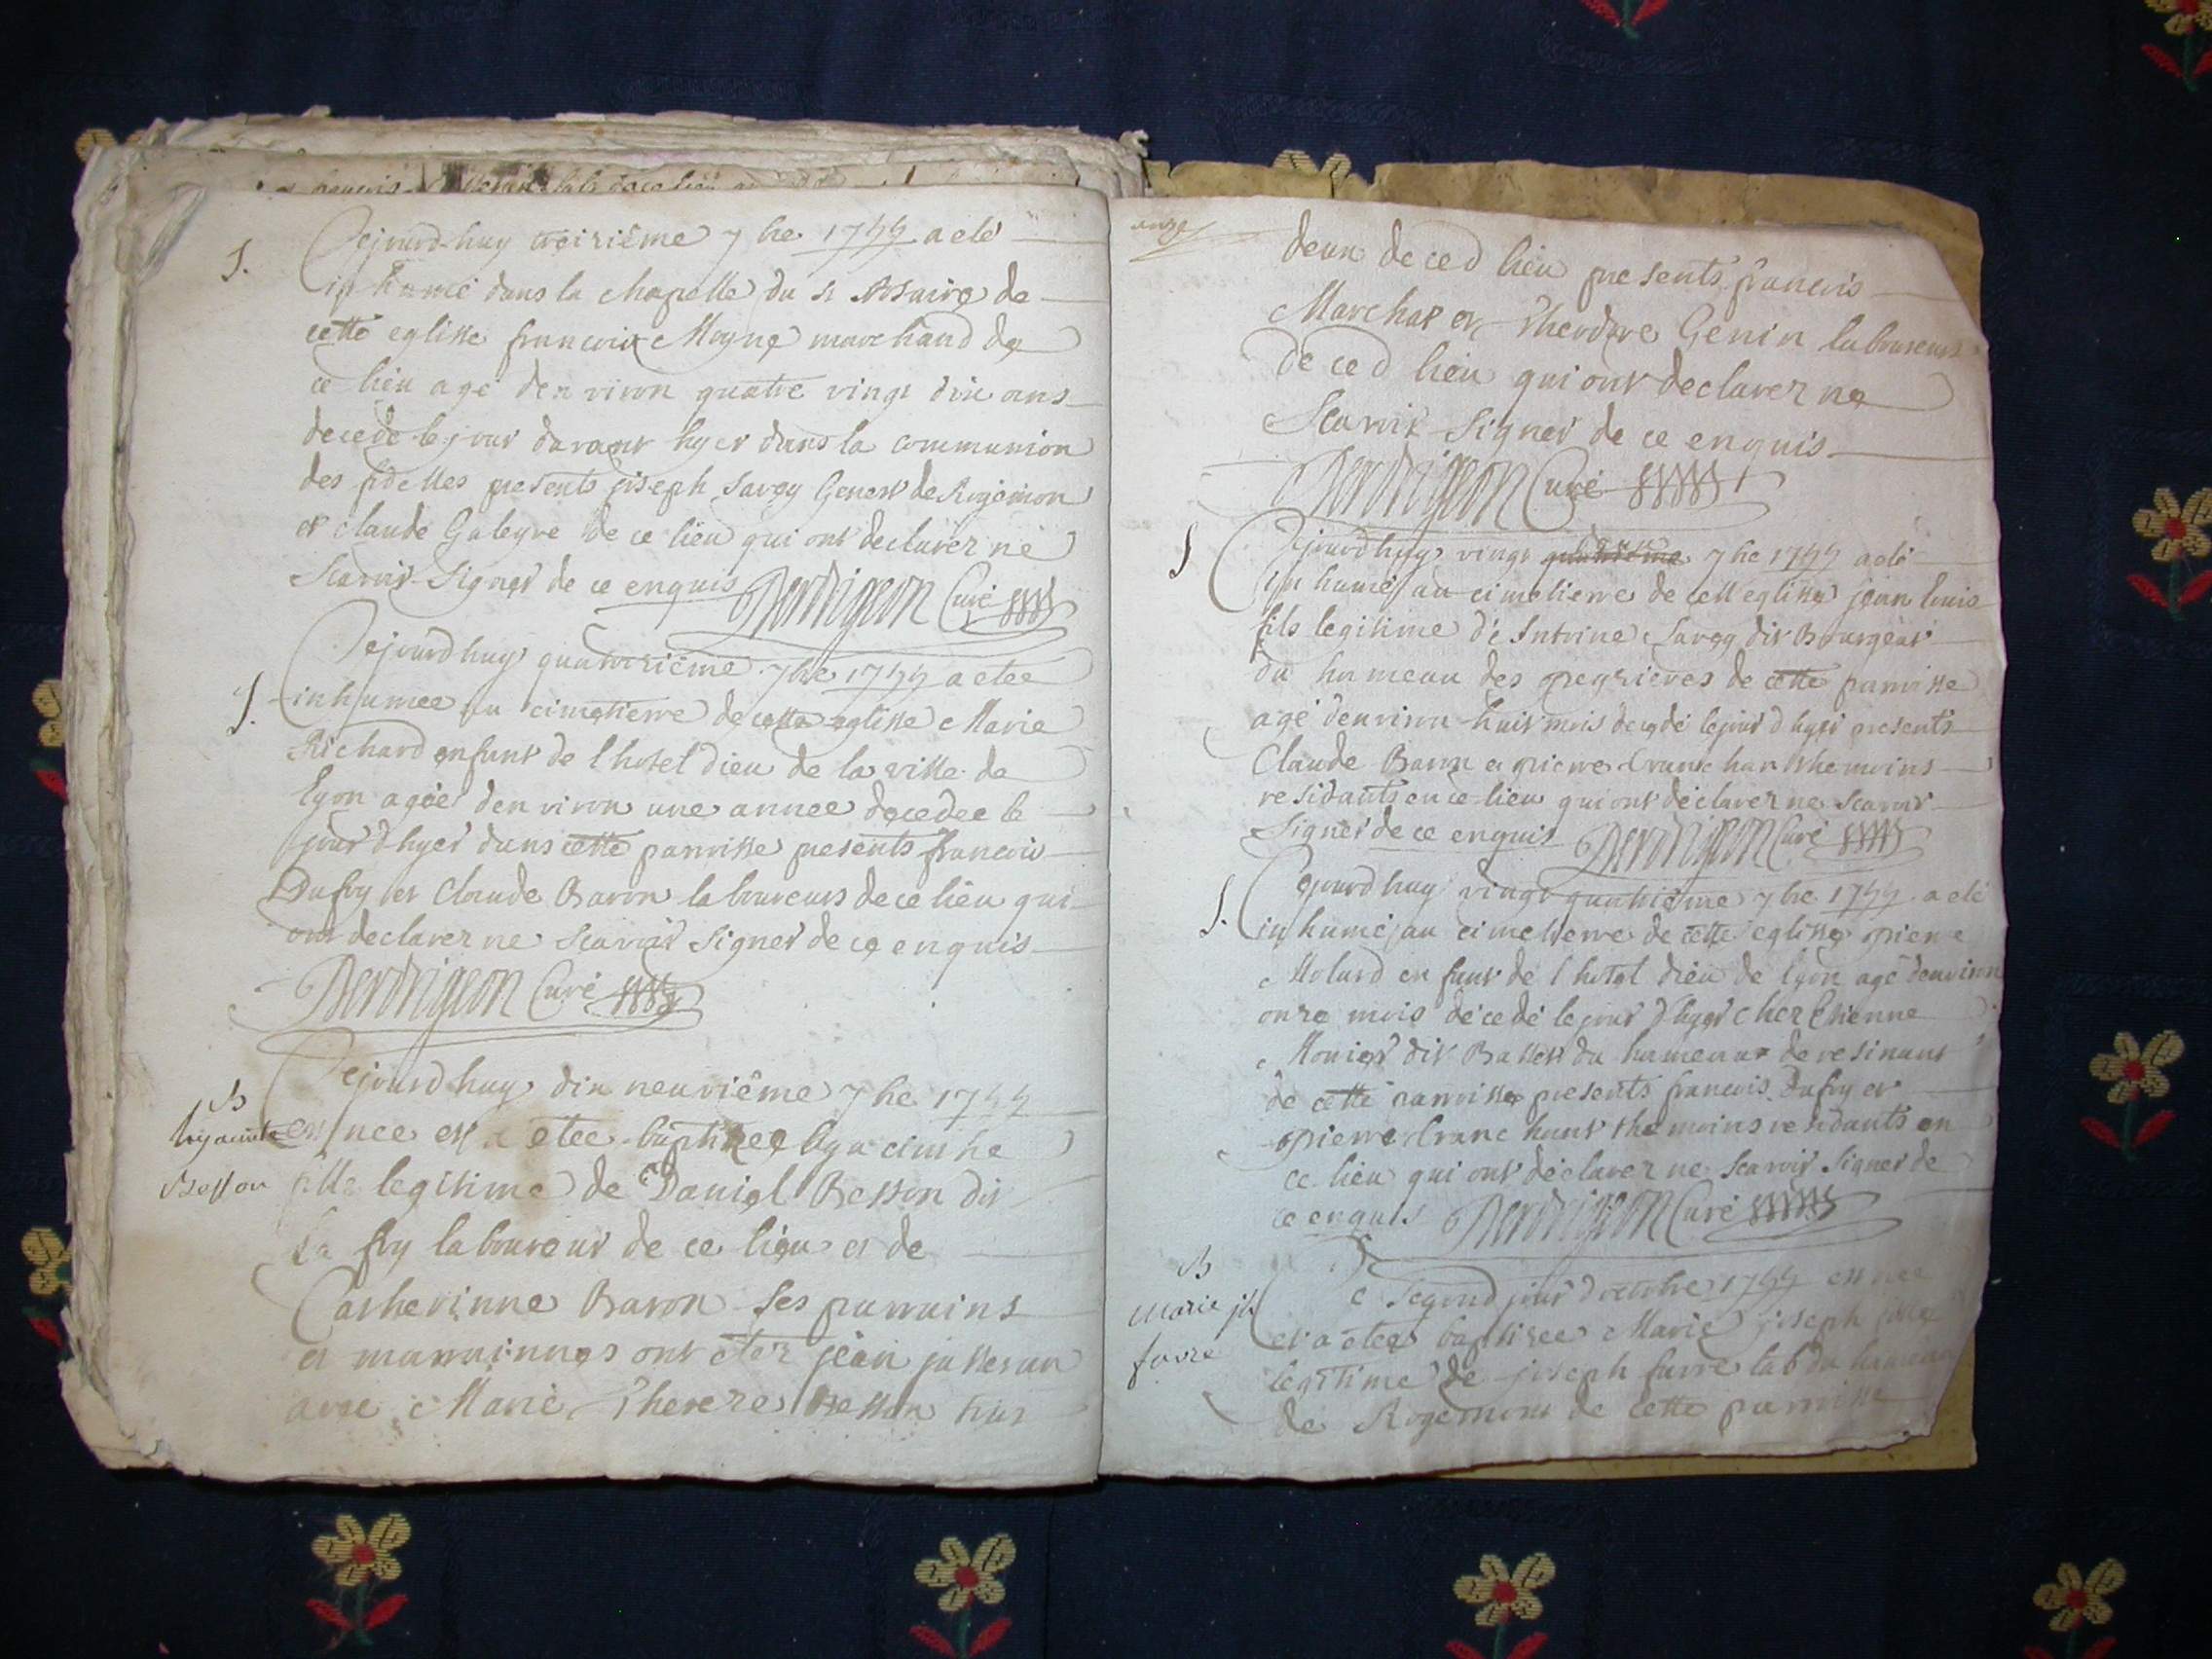 S. Cejourd-huy treiziême 7bre 1744 a eté
inhumé dans la chapelle du st Rosaire de
cette eglisse francois Moyne marchand de
ce lieu agé denviron quatre vingt dix ans
decedé le jour davant hyer dans la communion
des fidelles presents joseph Savey Genest de Rogemon
et claude Galeyre de ce lieu qui ont declarer ne
Scavoir Signer de ce enquis Derorigeon Curé
S. Cejourdhuy quatorziême 7bre 1744 a etee
inhumee au cimetierre de cette eglisse Marie
Richard enfant de l hotel dieu de la ville de
Lyon agée denviron une annee decedee le
jour d hyer dans cette parroisse presents francois
Dufoy et Claude Baron laboureurs de ce lieu qui
ont declarer ne Scavoir Signer de ce enquis
Curé
B
hyacinte
Besson
Cejourdhuy dix neuviême 7bre 1744
est nee et a etee baptizee hyacinthe
fille legitime de Daniel Besson dit
La foy laboureur de ce lieu et de
Catherinne Baron Ses parrains
et marrainnes ont eter jean jasseran
avec Marie Thereze Besson tous
onze
deux de ced lieu presents francois
Marchat et Theodore Genin laboureurs
de ced lieu qui ont declarer ne
Scavoir Signer de ce enquis
Curé
S Cejourdhuy vingt 7bre 1744 a eté
inhumé au cimetierre de cett eglisse jean louis
fils legitime de Antoine Savey dit Bourgeat
du hameau des de cette parroisse
agé denviron huit mois decedé le jour d hyer presents
Claude Baron et pierre Cranchant themoins
residants en ce lieu qui ont déclarer ne Scavoir
Signer de ce enquis Curé
S. Cejourdhuy vingt quatriême 7bre 1744 a eté
inhumé au cimetierre de cette eglisse pierre
Molard enfant de l hotel dieu de lyon agé denviron
onze mois décedé le jour d hyer chez Etienne
Monier dit Basset du hameaux de resinant
de cette parroisse presents francois Dufoy et
pierre Cranchant themoins residants en
ce lieu qui ont déclarer ne Scavoir Signer de
ce enquis Curé
B
marie jh
favre
Le Segond jour d octobre 1744 est nee
et a etee baptizee Marie joseph fille
legitime de joseph favre lab du hameau
de Rogemont de cette parroisse